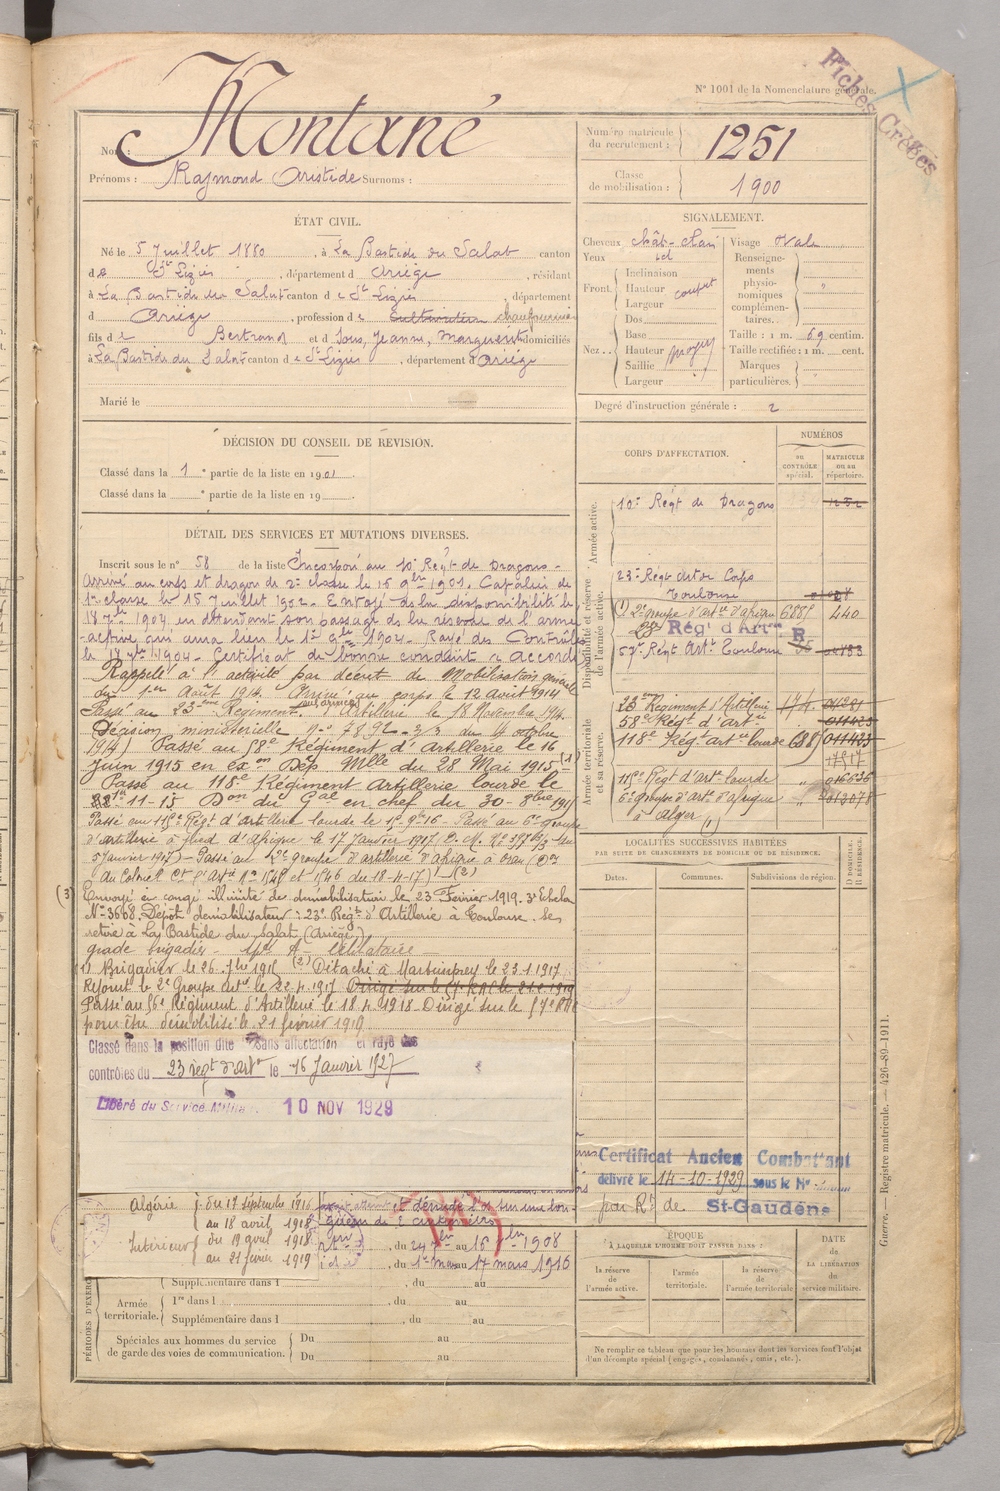 Fiches Créées
N° 1001 de la Nomenclature générale.
Nom : Montané
Prénoms : Raymond Aristide Surnoms :
Numéro matricule du recrutement : 1251
Classe de mobilisation : 1900
ÉTAT CIVIL.
Né le 5 Juillet 1880, à La Bastide du Salat canton
de St Lizier, département d Ariège, résidant
à La Bastide du Salat canton de St Lizier, département
d Ariège, profession de Cultivateur
fils de Bertrand et d Sous, Jeanne, Marguerite domiciliés
à La Bastide du Salat canton de St Lizier, département d'Ariège
Marié le
SIGNALEMENT.
Cheveux chât-clair Visage Ovale
Yeux id
Front. Inclinaison Hauteur Largeur
Renseignements physionomiques complémentaires. "
Nez.. Dos Base Hauteur Saillie Largeur moyen
Taille : 1 m. 69 centim.
Taille rectifiée : 1 m. cent.
Marques particulières.
Degré d'instruction générale : 2
DÉCISION DU CONSEIL DE RÉVISION.
Classé dans la 1e partie de la liste en 1901.
Classé dans la e partie de la liste en 19
CORPS D'AFFECTATION.
NUMÉROS
au CONTRÔLE spécial.
MATRICULE ou au répertoire.
Armée active.
10e Régt de Dragons
Disponibilité et réserve de l'armée active.
23e Régt Art de Corps
Toulouse
(1) 2e groupe d'artie d'afrique 6888 440
23e Régt d'Artie R
57e Régt Artie Toulouse
Armée territoriale et sa réserve.
23ème Régiment d'Artillerie
58e Régt d'artie 011423
118e Régt artie lourde 011423
115e Régt d'artie lourde "
6e groupe d'artie d'afrique "
à Alger
DÉTAIL DES SERVICES ET MUTATIONS DIVERSES.
Inscrit sous le n° 58 de la liste Incorporé au 10e Régt de Dragons -
Arrivé au corps et dragon de 2e classe le 16 9bre 1901. Cavalier de
1re classe le 15 Juillet 1902. Envoyé ds la disponibilité le
18 7bre 1904 en attendant son passage ds la réserve de l'armée
active qui aura lieu le 1er 9bre 1904. Rayé des Contrôles
le 18 7bre 1904. Certificat de bonne conduite accordé
Rappelé à l'activité par décret de Mobilisation générale
du 1er Août 1914. Arrivé au corps le 12 août 1914
Passé au 23ème Régiment d'Artillerie le 18 Novembre 1914.
Décision ministérielle n° 7892-3/3 du 4 octobre
1914) Passé au 58e Régiment d'Artillerie le 16
Juin 1915 en exon Dép. Mlle du 28 Mai 1915 (1)
Passé au 118e Régiment Artillerie lourde le
11-15 Don du Gal en chef du 30-8bre 1915
Passé au 115e Régt d'Artillerie lourde le 1er 9-16 Passé au 6e groupe
d'artillerie à pied d'afrique le 17 Janvier 1917
5 Janvier 1917) - Passé au 2e groupe d'artillerie d'afrique à Oran
du Colonel Ct l'Artie n° 1545 et 1546 du 18-4-17) (2)
(3) Envoyé en congé illimité de démobilisation le 23 Février 1919. 3e Echelon
N° 3668. Dépôt démobilisateur : 23e Régt d'Artillerie à Toulouse. Se
retire à La Bastide du Salat (Ariège).
grade brigadier - célibataire
1) Brigadier le 26 7bre 1916 (2) Détaché à le 23.1.1917
Rejoint le 2e Groupe le 22.4.1917
Passé au 56e Régiment d'Artillerie le 18.4.1918 - Dirigé sur le 57e RAC
pour être démobilisé le 21 février 1919
Classé dans la position dite "Sans affectation" et rayé des
contrôles du 23 régt d'artie le 16 Janvier 1927
Libéré du Service Militaire 10 NOV 1929
LOCALITÉS SUCCESSIVES HABITÉES
PAR SUITE DE CHANGEMENTS DE DOMICILE OU DE RÉSIDENCE.
Dates. Communes. Subdivisions de région. D. DOMICILE. R. RÉSIDENCE.
Certificat Ancien Combattant
délivré le 14-10-1929 sous le N°
par Rt de St-Gaudens
Algérie du 17 septembre 1916
au 18 avril 1918
Intérieur du 19 avril 1918
au 21 février 1919
du 24 au 16 1908
du 1er mars au 17 mars 1916
PÉRIODES D'EXERCICES
Supplémentaire dans l , du au
Armée territoriale.
1re dans l , du au
Supplémentaire dans l , du au
Spéciales aux hommes du service de garde des voies de communication.
Du au
Du au
ÉPOQUE
À LAQUELLE L'HOMME DOIT PASSER DANS :
la réserve de l'armée active.
l'armée territoriale.
la réserve de l'armée territoriale
DATE de LA LIBÉRATION du service militaire.
Ne remplir ce tableau que pour les hommes dont les services font l'objet
d'un décompte spécial (engagés, condamnés, omis, etc.).
Guerre. — Registre matricule. — 426-89-1911.